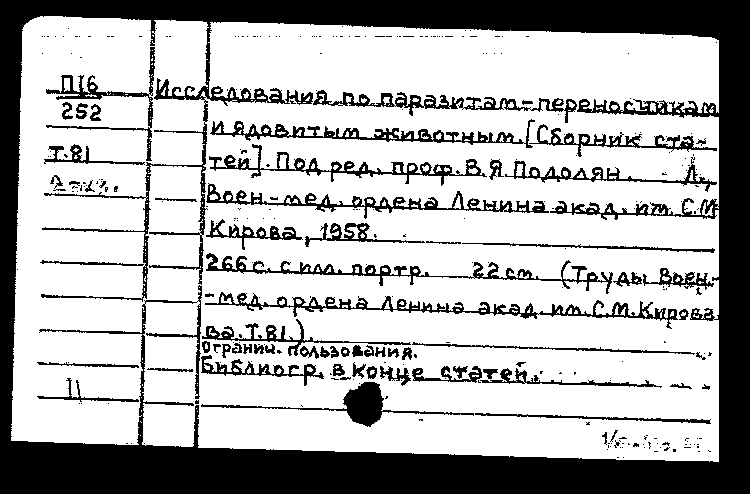 П16
252
Т.81
Исследования по паразитам-переносчикам
и ядовитым животным. [Сборник ста-
тей]. Под ред. проф. В.Я Подолян. - Л.,
Воен.-мед. ордена Ленина акад. им. С.М
Кирова, 1958.
266 с. с илл. портр. 22 см. (Труды Воен.-
-мед. ордена Ленина акад. им. С.М. Кирова
ва. Т.81.).
огранич. пользования.
Библиогр. в конце статей.
11